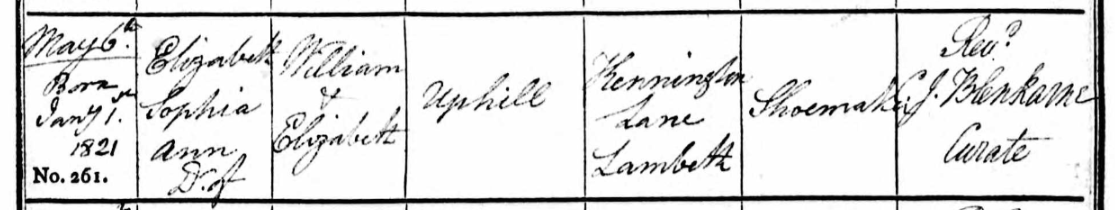 May 6th.
Born
Jany 1st.
1821
No. 261.
Elizabeth
Sophia
Ann
Dr. of
William
&
Elizabeth
Uphill
Kennington
Lane
Lambeth
Shoemaker
Revd.
C. J. Blenkarne
Curate